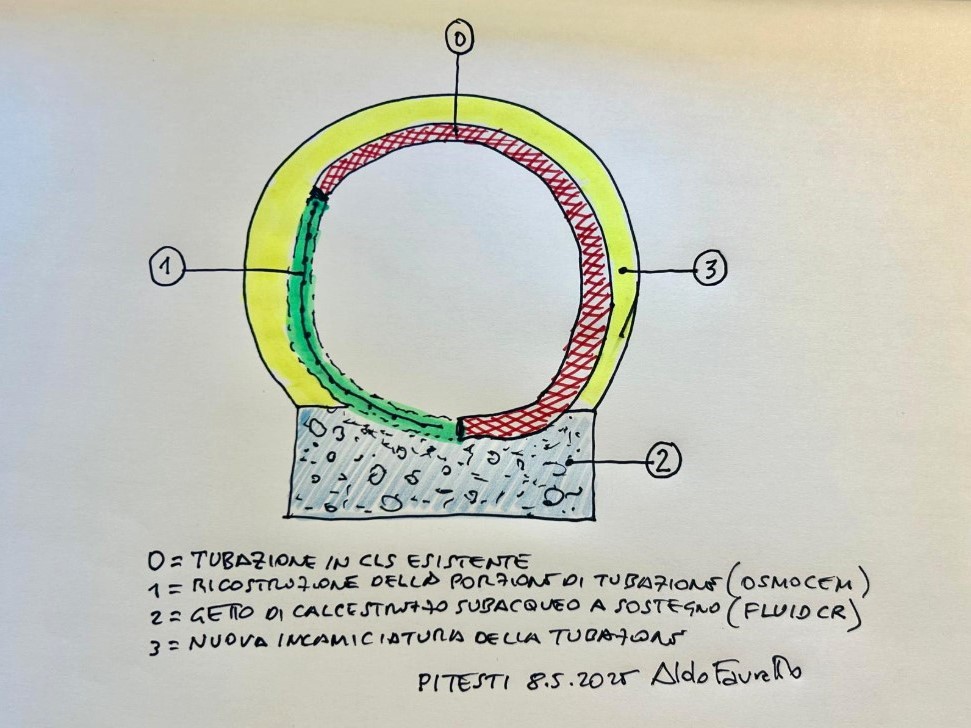 0
1
3
2
0 = TUBAZIONE IN CLS ESISTENTE
1 = RICOSTRUZIONE DELLA PORZIONE DI TUBAZIONE (OSMOCEM)
2 = GETTO DI CALCESTRUZZO SUBACQUEO A SOSTEGNO (FLUID CR)
3 = NUOVA INCAMICIATURA DELLA TUBAZIONE
PITESTI 8.5.2025 Aldo